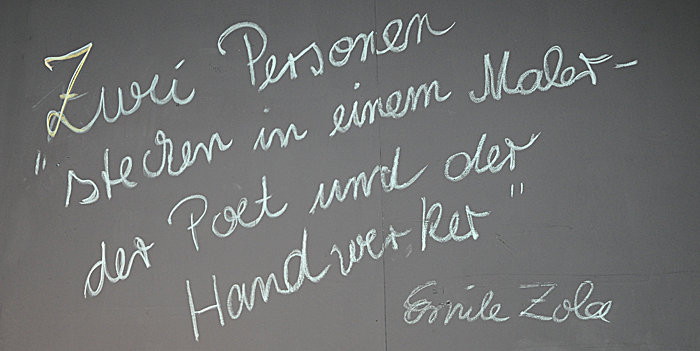 Zwei Personen
"stecken in einem Maler-
der Poet und der
Handwerker"
Emile Zola